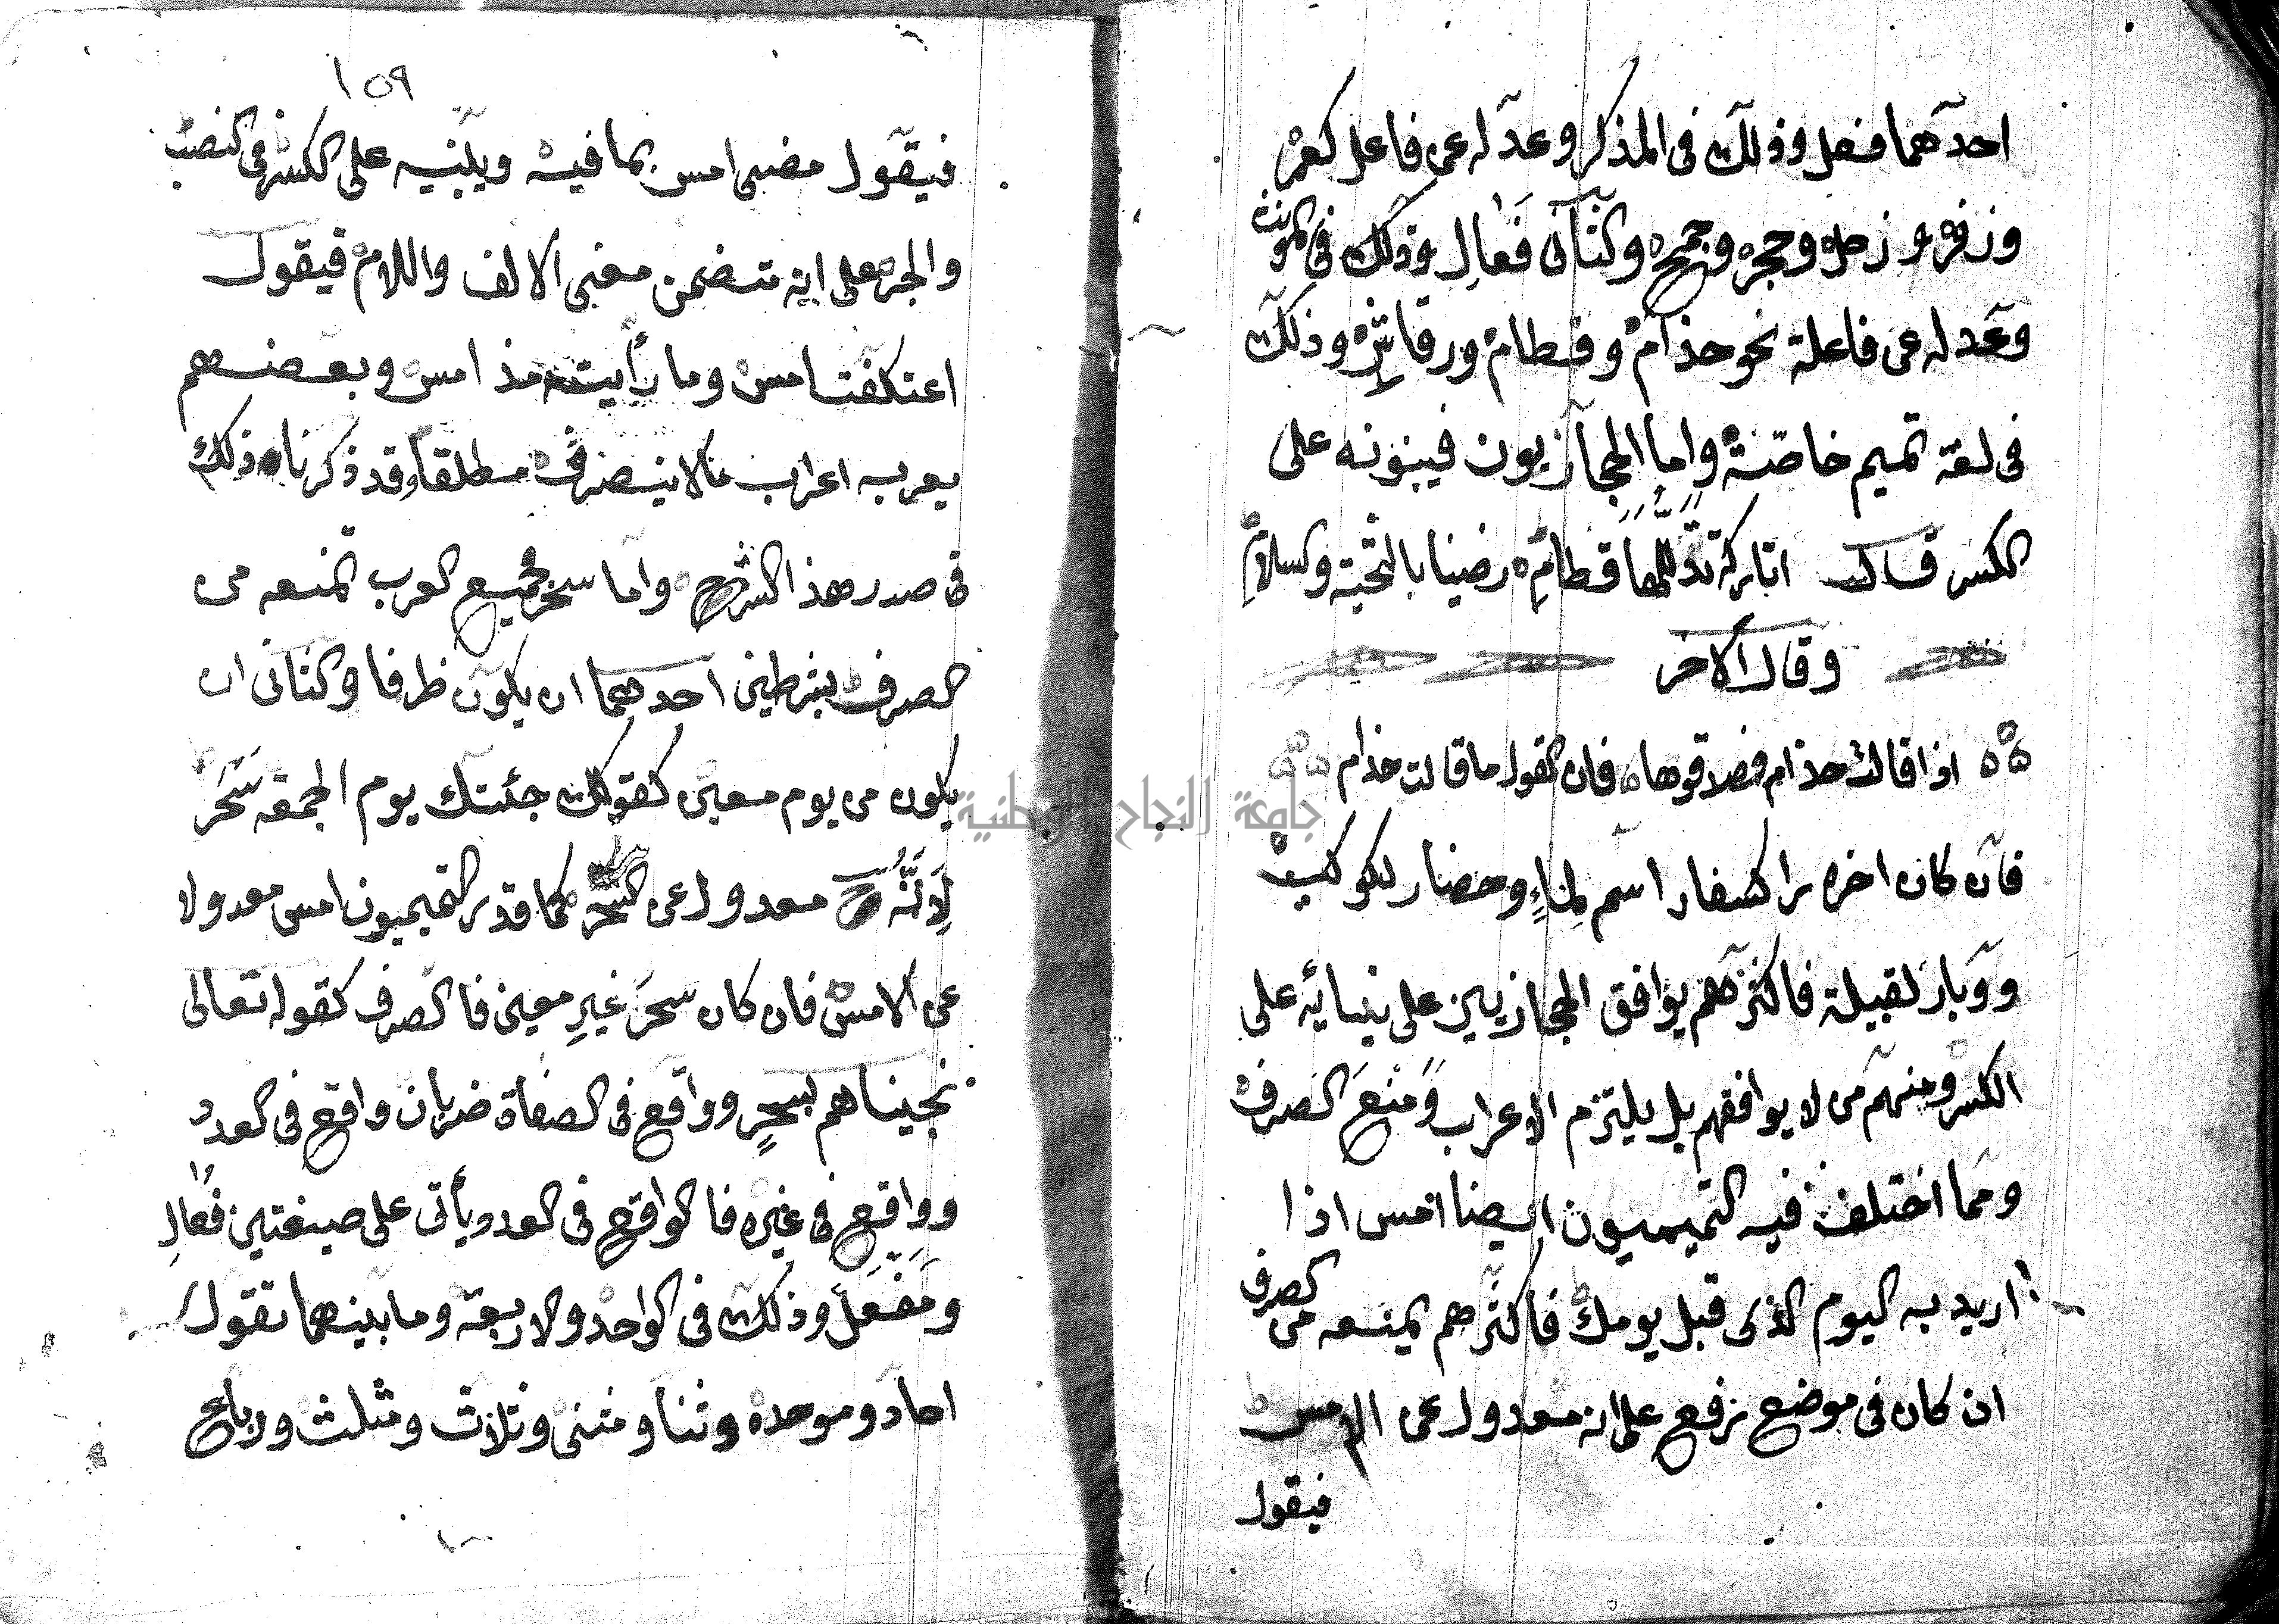 احدهما فعل وذلك فى المذكر وعدله عن فاعل كعمر
وزفر وزحل وجحح وجمح والثانى فَعالِ وذلك فى المونث
وعدله عن فاعلة نحو حذام وقطام ورقاش وذلك
فى لغة تميم خاصة واما الحجازيون فيبنونه على
الكسر قال اتاركة تدللها قطام رضينا بالتحية والسلام
وقال الاخر
اذا قالت حذام فصدقوها فان القول ما قالت حذام
فان كان اخره را كسفار اسم لماءٍ وحضار لكوكب
ووبار لقبيلة فاكثرهم يوافق الحجازيين على بنيائه على
الكسر ومنهم من لا يوافقهم بل يلتزم الاعراب ومنع الصرف
ومما اختلف فيه التميميون ايضا امس اذا
اريد به اليوم الذى قبل يومك فاكثرهم يمنعه من الصرف
ان كان فى موضع رفع على انه معدول عن الامس
فيقول
١٥٩
فيقول مضى امس بما فيه ويبنيه على الكسر فى النصب
والجر على انه متضمن معنى الالف واللام فيقول
اعتكفت امس وما رأيته مذ امس وبعضهم
يعربه اعراب مالا ينصرف مطلقا وقد ذكرنا ذلك
فى صدر هذا الشرح واما سحر فجميع العرب تمنعه من
الصرف بشرطين احدهما ان يكون ظرفا والثانى ان
يكون من يوم معين كقولك جئتك يوم الجمعة سَحَرَ
لِاَنَّهُ معدول عن السحر كما قدر التميميون امس معدولا
عن الامس فان كان سحر غير معين فالصرف كقوله تعالى
نجيناهم بسحرٍ وواقع فى الصفاة ضربان واقع فى العدد
وواقع فى غيره فالواقع فى العدد ويأتى على صيغتين فُعالِ
ومَفْعَل وذلك فى الواحد والاربعة وما بينهما تقول
احاد وموحد وثنا ومثنى وثلاث ومثلث ورباع
جامعة النجاح الوطنية